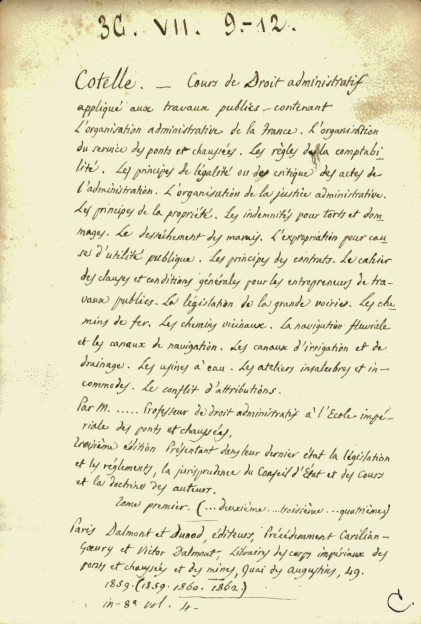 3G. VII. 9-12.
Cotelle. — Cours de Droit administratif
appliqué aux travaux publics — contenant
L'organisation administrative de la France. L'organisation
du service des ponts et chaussées. Les règles de la comptabi-
lité. Les principes de légalité ou des critique des actes de
l'administration. L'organisation de la justice administrative.
Les principes de la propriété. Les indemnités pour torts et dom-
mages. Le dessèchement des marais. L'expropriation pour cau-
se d'utilité publique. Les principes des contrats. Le cahier
des clauses et conditions générales pour les entrepreneurs de tra-
vaux publics. La législation de la grande voirie. Les che-
mins de fer. Les chemins vicinaux. La navigation fluviale
et les canaux de navigation. Les canaux d'irrigation et de
drainage. Les usines à eau. Les ateliers insalubres et in-
commodes. Le conflit d'attributions.
Par M. ..... Professeur de droit administratif à l'Ecole impé-
riale des ponts et chaussées.
Troisième édition Présentant dans leur dernier état la législation
et les règlements, la jurisprudence du Conseil d'Etat et des Cours
et la doctrine des auteurs.
Tome premier. (...deuxième...troisième...quatrième)
Paris Dalmont et Dunod, éditeurs, Précédemment Carilian-
Gœury et Victor Dalmont, Libraires des corps impériaux des
ponts et chaussées et des mines, Quai des Augustins, 49.
1859. (1859. 1860. 1862.)
in-8° vol. 4-
C.